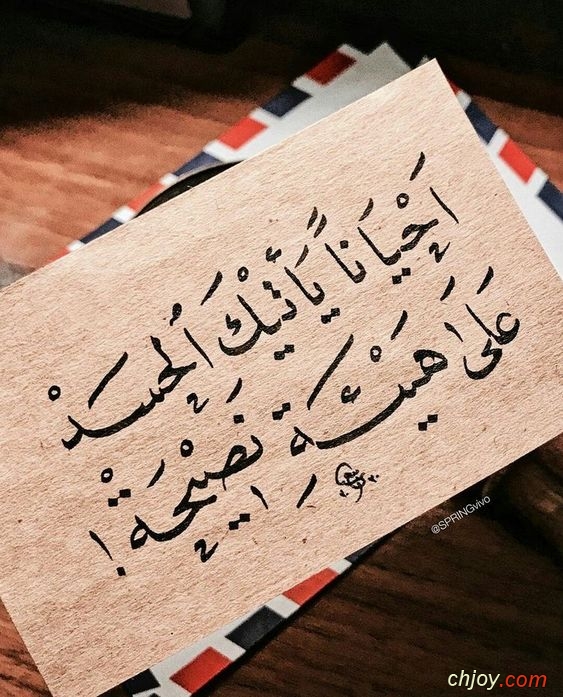 أَحْيَانَاً يَأتْيكَ الحَسَدْ
عَلَى هَيْئَة نَصِيْحَة !
@SPRINGvivo
chjoy.com